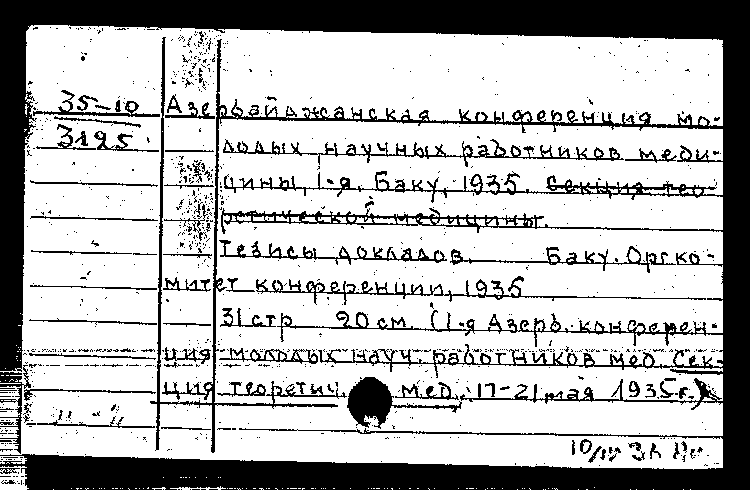 35-10
3125
Азербайджанская конференция мо-
лодых научных работников меди-
цины, 1-я. Баку, 1935. Секция тео-
ретической медицины.
Тезисы докладов. Баку. Оргко-
митет конференции, 1935
31 стр 20 см. (1-я Азерб. конферен-
ция молодых науч. работников мед. Сек-
ция теоретич. мед., 17-21 мая 1935 г.)
10/IV